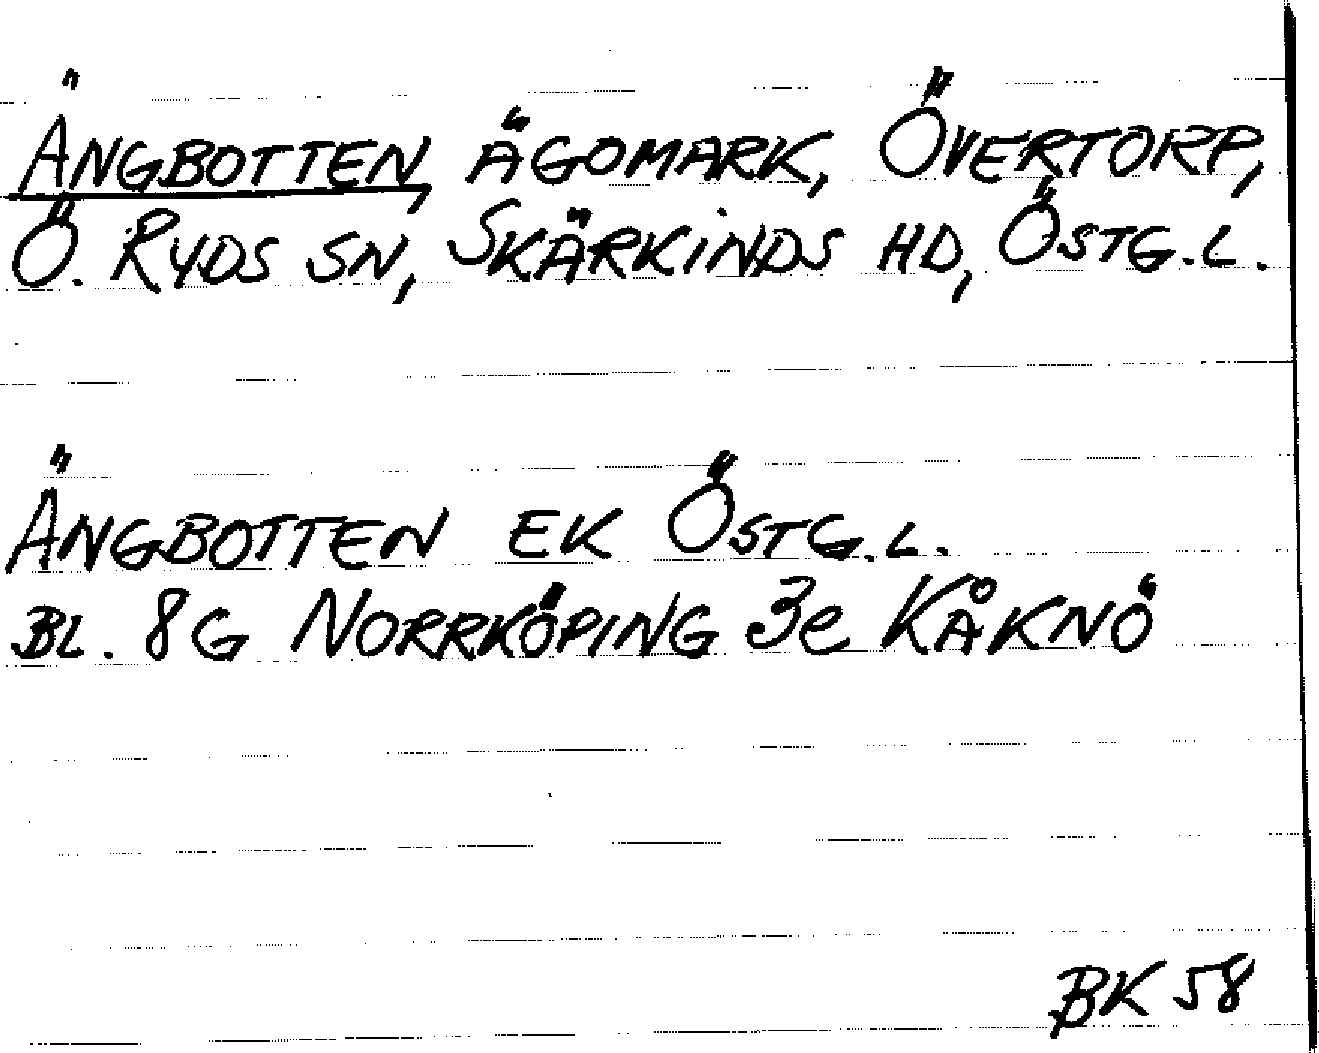 ÄNGBOTTEN, ÄGOMARK, ÖVERTORP,
Ö. RYDS SN, SKÄRKINDS HD, ÖSTG.L.
ÄNGBOTTEN EK ÖSTG.L.
BL. 8G NORRKÖPING 3e KÅKNÖ
BK 58